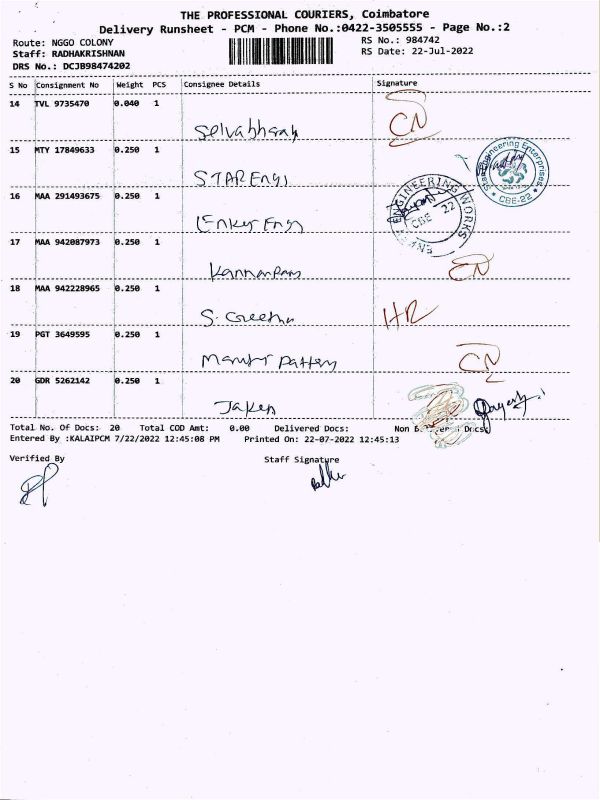 THE PROFESSIONAL COURIERS, Coimbatore
Delivery Runsheet - PCM - Phone No.:0422-3505555 - Page No.:2
Route: NGGO COLONY
RS No.: 984742
Staff: RADHAKRISHNAN
RS Date: 22-Jul-2022
DRS No.: DCJB98474202
S No Consignment No Weight PCS Consignee Details Signature
14 TVL 9735470 0.040 1
CN
15 MTY 17849633 0.250 1
STAR Engi
Engineering Enterprises
CBE-22
16 MAA 291493675 0.250 1
ENGINEERING WORKS
CBE 22
17 MAA 942087973 0.250 1
CN
18 MAA 942228965 0.250 1
HR
19 PGT 3649595 0.250 1
CN
20 GDR 5262142 0.250 1
Total No. Of Docs: 20 Total COD Amt: 0.00 Delivered Docs: Non Docs:
Entered By :KALAIPCM 7/22/2022 12:45:08 PM Printed On: 22-07-2022 12:45:13
Verified By Staff Signature